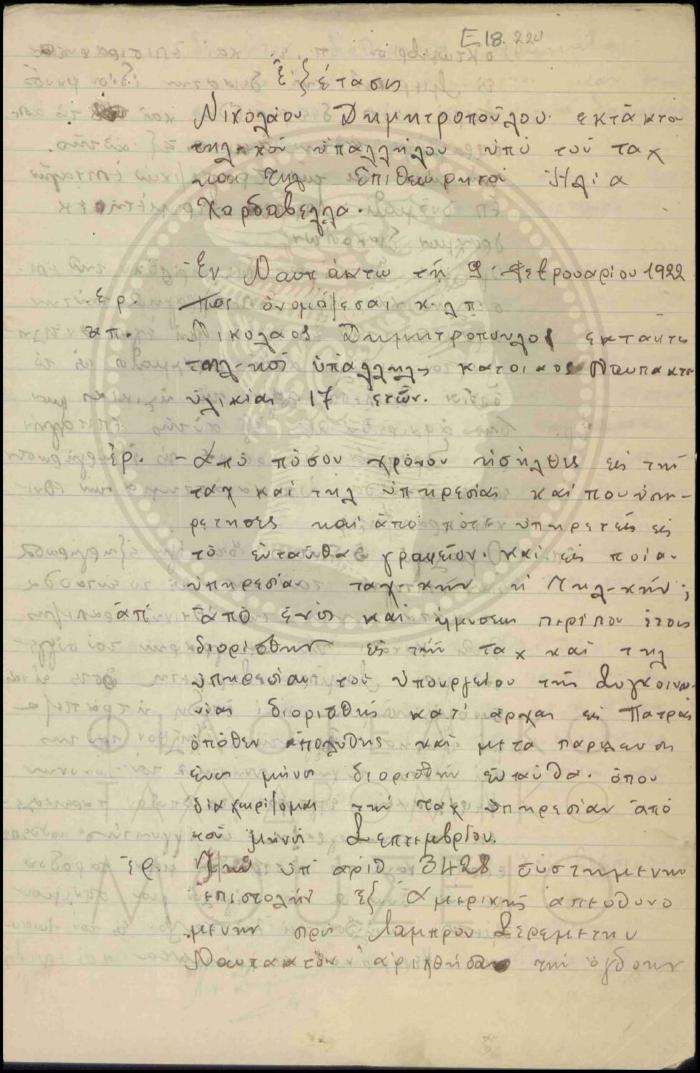 Ε18.220
Ἐξέτασις
Νικολάου Δημητροπούλου ἐκτάκτου
τηλ/κοῦ ὑπαλλήλου ὑπό τοῦ ταχ
καί τηλ Ἐπιθεωρητοῦ Ἠλία
Καρδαβέλλα.
Ἐν Ναυπάκτω τῇ 9 Φεβρουαρίου 1922
Ἐρ. Πως ὀνομάζεσαι κ.λ.π.
απ. Νικολαος Δημητροπουλος εκτακτος
τηλ-κος ὑπάλληλος κατοικος Ναυπακτου
ἡλικίας 17 ετῶν.
ἐρ. - Ἀπό πόσου χρόνου εἰσῆλθες εἰς την
ταχ και τηλ ὑπηρεσίαν και που ὑπη-
ρετησες και ἀπό πότε ὑπηρετεῖς εις
τὸ ενταῦθα γραφεῖον. Και εἰς ποία
ὑπηρεσία ταχ-κήν ἤ τηλ-κήν;
ἀπ. ἀπό ἑνός και ἡμισεως περίπου ἔτους
διορίσθην εἰς τήν ταχ και τηλ
ὑπηρεσίαν του Ὑπουργείου της Συγκοινω
νίας διορισθείς κατ' αρχας εις Πατρας
ὁπόθεν ἀπολυθεὶς και μετα παρελευση
ενος μηνος διορισθην ενταῦθα. ὁπου
διαχειρίζομαι την ταχ υπηρεσίαν ἀπό
του μηνος Σεπτεμβρίου.
ἐρ Την ὑπ' αριθ 3428 συστημενην
επιστολήν ἐξ Ἀμερικῆς ἀπευθυνο
μενην πρὸς Λαμπρον Σερεμετην
Ναυπακτον την ὀγδοην